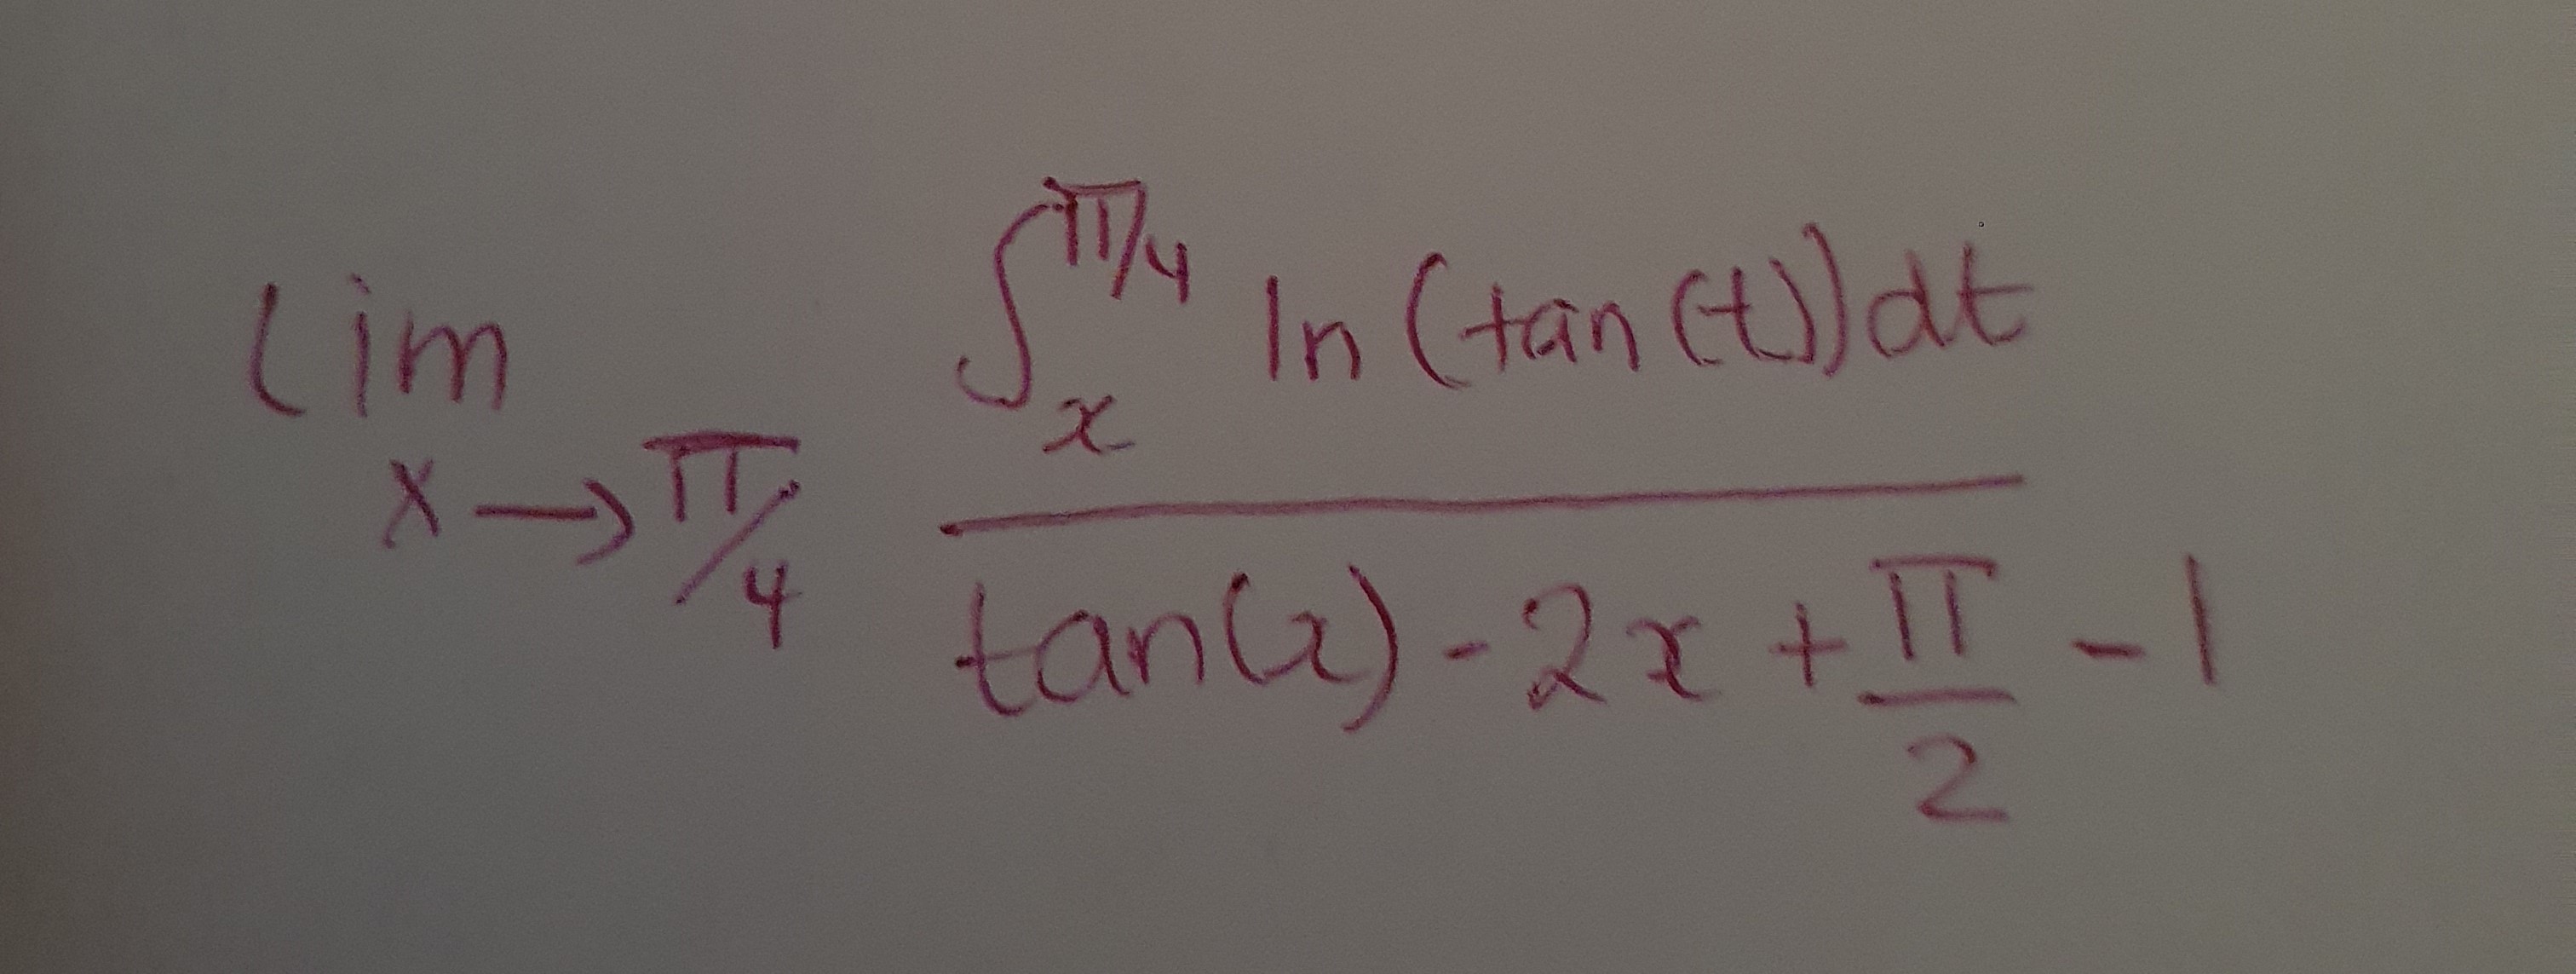 lim x→π/4 ∫_x^{π/4} ln(tan(t))dt
tan(x) - 2x + π/2 - 1